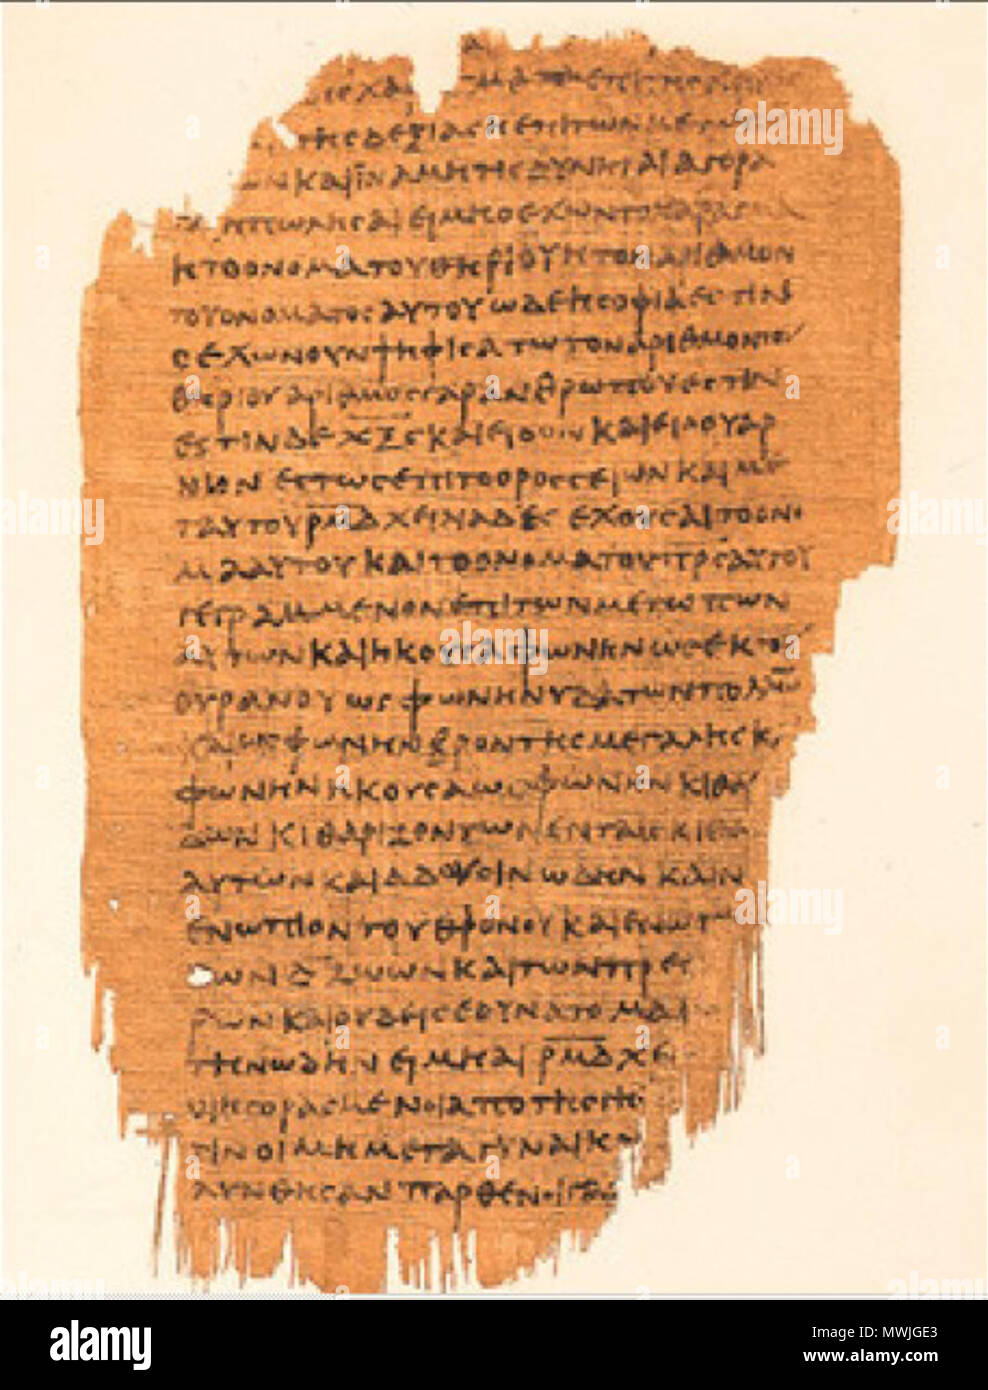 ΤΗϹΔΕΞΙΑϹΗΕΠΙΤΩΝΜΕΤΩ
ΩΝΚΑΙΙΝΑΜΗΤΙϹΔΥΝΗΤΑΙΑΓΟΡΑ
ΗΠΩΛΗϹΑΙΕΙΜΗΟΕΧΩΝΤΟΧΑΡΑΓΜΑ
ΗΤΟΟΝΟΜΑΤΟΥΘΗΡΙΟΥΗΤΟΝΑΡΙΘΜΟΝ
ΤΟΥΟΝΟΜΑΤΟϹΑΥΤΟΥΩΔΕΗϹΟΦΙΑΕϹΤΙΝ
ΟΕΧΩΝΟΥΝΨΗΦΙϹΑΤΩΤΟΝΑΡΙΘΜΟΝΤΟΥ
ΘΗΡΙΟΥΑΡΙΘΜΟϹΓΑΡΑΝΘΡΩΠΟΥΕϹΤΙΝ
ΕϹΤΙΝΔΕΧ̅Ξ̅Ϛ̅ΚΑΙΕΙΔΟΝΚΑΙΕΙΔΟΥΑΡ
ΝΙΟΝΕϹΤΩϹΕΠΙΤΟΟΡΟϹϹΕΙΩΝΚΑΙΜΕ
ΤΑΥΤΟΥΡ̅Μ̅Δ̅ΧΕΙΛΙΑΔΕϹΕΧΟΥϹΑΙΤΟΟΝΟ
ΜΑΑΥΤΟΥΚΑΙΤΟΟΝΟΜΑΤΟΥΠ̅Ρ̅Ϲ̅ΑΥΤΟΥ
ΓΕΓΡΑΜΜΕΝΟΝΕΠΙΤΩΝΜΕΤΩΠΩΝ
ΑΥΤΩΝΚΑΙΗΚΟΥϹΑΦΩΝΗΝΩϹΕΚΤΟΥ
ΟΥΡΑΝΟΥΩϹΦΩΝΗΝΥΔΑΤΩΝΠΟΛΛΩ̅
ΚΑΙΩϹΦΩΝΗΝΒΡΟΝΤΗϹΜΕΓΑΛΗϹΚ
ΦΩΝΗΝΗΚΟΥϹΑΩϹΦΩΝΗΝΚΙΘΑ
ΔΩΝΚΙΘΑΡΙΖΟΝΤΩΝΕΝΤΑΙϹΚΙΘΑ
ΑΥΤΩΝΚΑΙΑΔΟΥϹΙΝΩΔΗΝΚΑΙΝ
ΕΝΩΠΙΟΝΤΟΥΘΡΟΝΟΥΚΑΙΕΝΩΠ
ΤΩΝΔ̅ΖΩΩΝΚΑΙΤΩΝΠΡΕϹ
ΡΩΝΚΑΙΟΥΔΕΙϹΕΔΥΝΑΤΟΜΑΘ
ΤΗΝΩΔΗΝΕΙΜΗΑΙΡ̅Μ̅Δ̅ΧΕΙ
ΟΙΗΓΟΡΑϹΜΕΝΟΙΑΠΟΤΗϹΓΗϹ
ΤΙΝΟΙΜΗΜΕΤΑΓΥΝΑΙΚΩ
ΛΥΝΘΗϹΑΝΠΑΡΘΕΝΟΙΓΑΡ
alamy
Image ID: MWJGE3
www.alamy.com